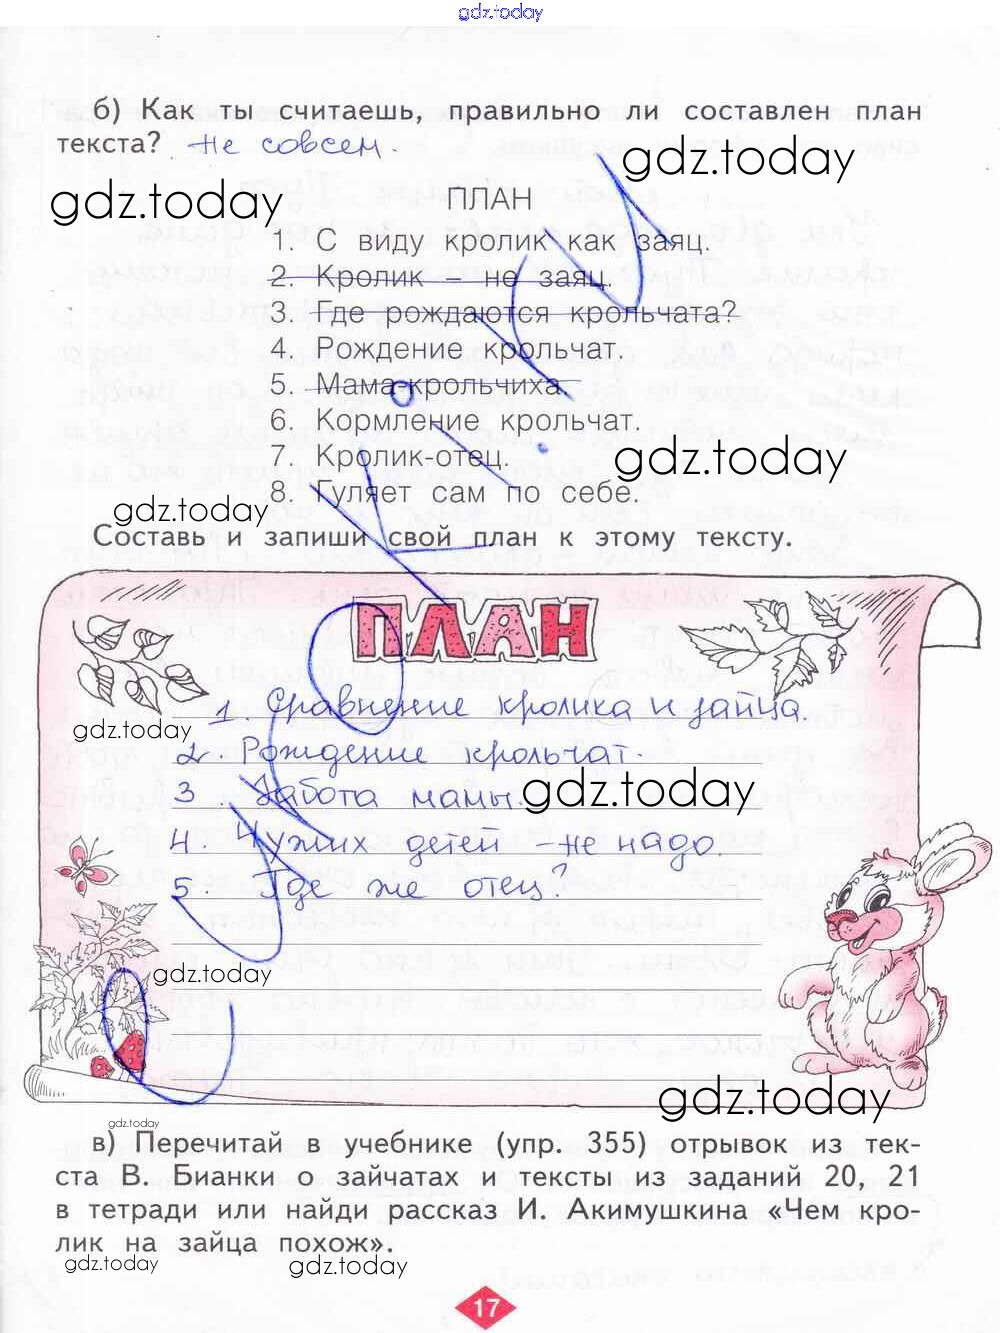 gdz.today
б) Как ты считаешь, правильно ли составлен план
текста? Не совсем.
gdz.today
gdz.today
ПЛАН
1. С виду кролик как заяц.
2. Кролик — не заяц.
3. Где рождаются крольчата?
4. Рождение крольчат.
5. Мама-крольчиха.
6. Кормление крольчат.
7. Кролик-отец.
gdz.today
8. Гуляет сам по себе.
gdz.today
Составь и запиши свой план к этому тексту.
ПЛАН
1 Сравнение кролика и зайца.
gdz.today
2. Рождение крольчат.
3. Забота мамы.
gdz.today
4. Чужих детей – не надо.
5. Где же отец?
gdz.today
gdz.today
gdz.today
в) Перечитай в учебнике (упр. 355) отрывок из тек-
ста В. Бианки о зайчатах и тексты из заданий 20, 21
в тетради или найди рассказ И. Акимушкина «Чем кро-
лик на зайца похож».
gdz.today
gdz.today
17